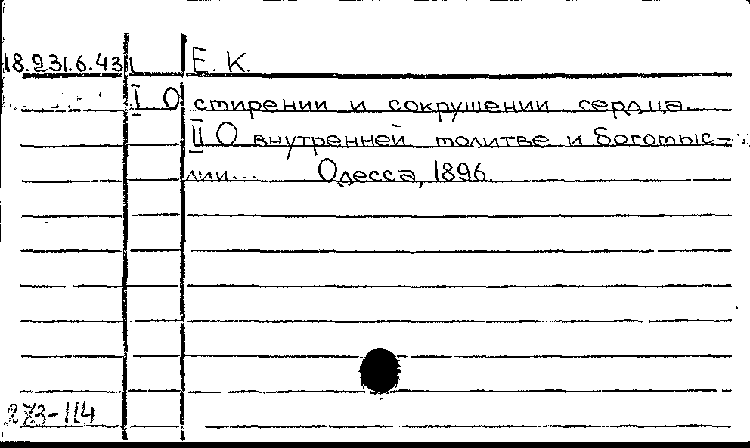 18.231.6.43 Е. К.
I О смирении и сокрушении сердца.
II О внутренней молитве и богомыс-
лии... Одесса, 1896.
273-114